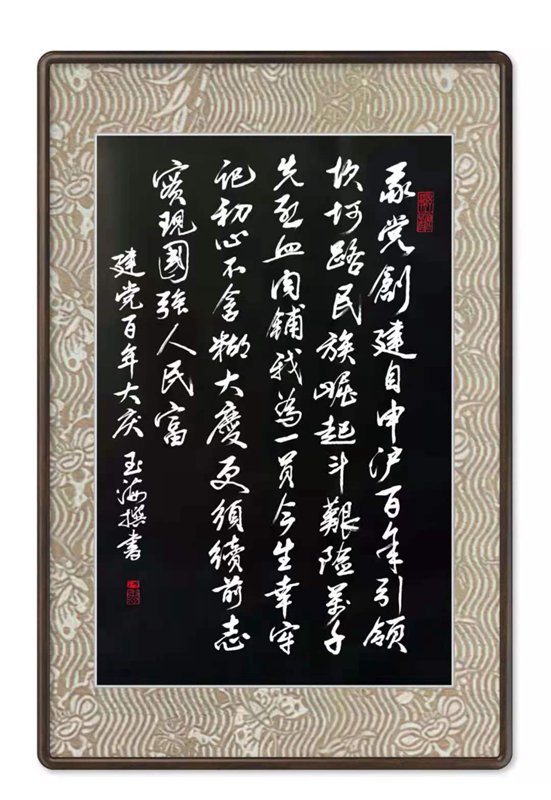 我党創建自申沪百年引领
坎坷路民族崛起斗艱险萬千
先烈血肉鋪我為一員今生幸牢
记初心不含糊大慶更須續前志
實現國强人民富
建党百年大庆 玉海撰書